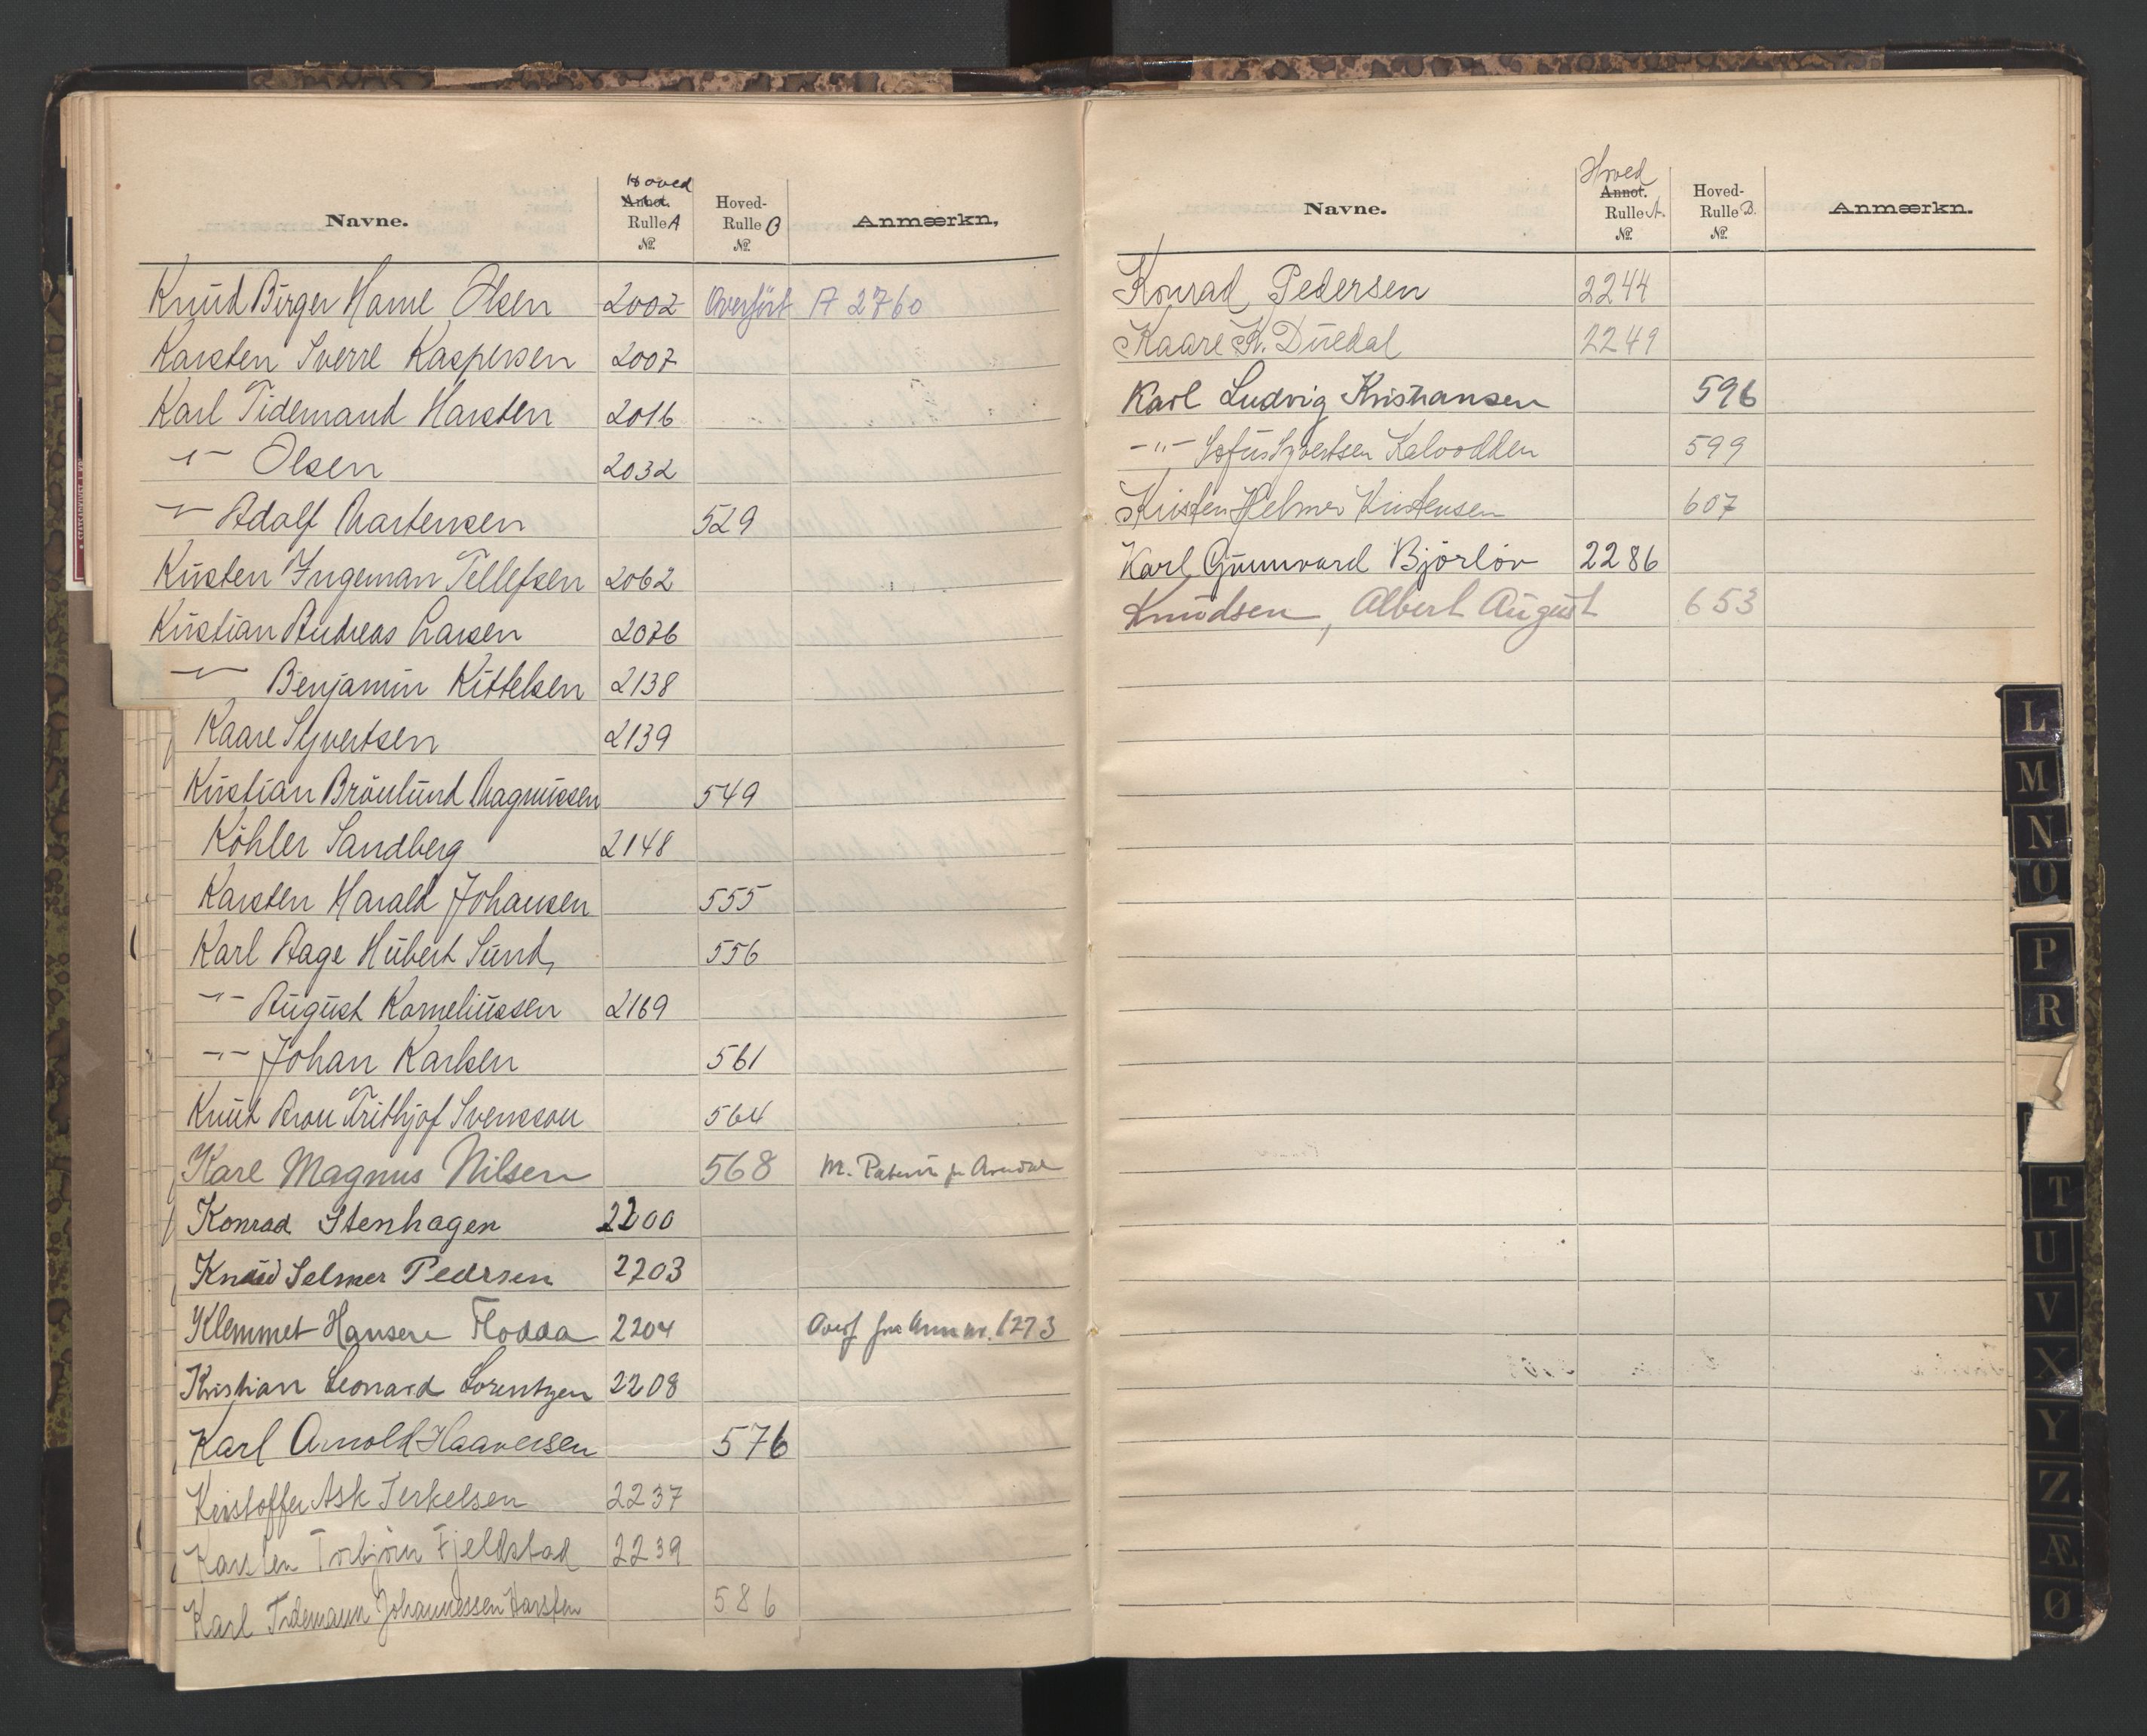 Navne. Hoved Annot. Rulle A № Hoved-Rulle B № Anmærkn,
Knud Birger Hansl Olsen 2002 Overført A 2760
Karsten Sverre Kaspersen 2007
Karl Tidemand Harsten 2016
-"- Olsen 2032
-"- Adolf Martensen 529
Kristen Ingeman Tellefsen 2062
Kristian Andreas Larsen 2076
-"- Benjamin Kittelsen 2138
Kaare Syvertsen 2139
Kristian Brönlund Magnussen 549
Köhler Sandberg 2148
Karsten Harald Johansen 555
Karl Aage Hubert Sund, 556
-"- August Korneliussen 2169
-"- Johan Karlsen 561
Knut Aron Frithjof Svensson 564
Karl Magnus Nilsen 568 M. Patent fra Arendal
Konrad Stenhagen 2200
Knud Selmer Pedersen 2203
Klemmet Hansen Flodda 2204 Overf fra Ann nr. 1273
Kristian Leonard Lorentzen 2208
Karl Arnold Haaversen 576
Kristoffer Ask Terkelsen 2237
Karsten Torbjörn Fjeldstad 2239
Karl Tidemann Johannessen Harsten 586
Navne. Hoved Annot. Rulle A. № Hoved-Rulle B. № Anmærkn.
Konrad Pedersen 2244
Kaare K. Duedal 2249
Karl Ludvig Kristiansen 596
-"- Sofus Syvertsen Kalvodden 599
Kristen Helmer Kristensen 607
Karl Gunnvard Björlöv 2286
Knudsen, Albert August 653
L
M
N
O
P
R
T
U
V
X
Y
Z
Æ
Ø